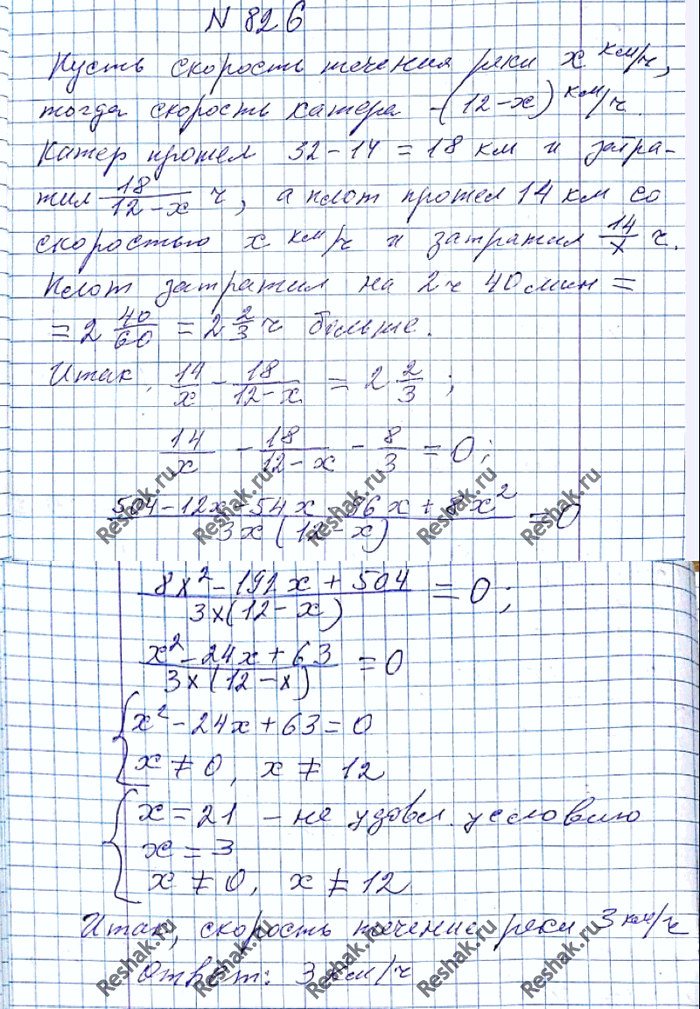 N 826
Пусть скорость течения реки x км/ч,
тогда скорость катера - (12-x) км/ч.
Катер прошел 32-14=18 км и затра-
тил 18/(12-x) ч, а плот прошел 14 км со
скоростью x км/ч и затратил 14/x ч.
Плот затратил на 2ч 40мин =
= 2 40/60 = 2 2/3 ч більше.
Итак, 14/x - 18/(12-x) = 2 2/3 ;
14/x - 18/(12-x) - 8/3 = 0;
(504-12x-54x-96x+8x²)/(3x(12-x)) = 0
(8x²-191x+504)/(3x(12-x)) = 0;
(x²-24x+63)/(3x(12-x)) = 0
{ x²-24x+63=0
x≠0, x≠12
{ x=21 - не удовл. условию
x=3
x≠0, x≠12
Итак, скорость течение реки 3 км/ч
Ответ: 3 км/ч
Reshak.ru Reshak.ru Reshak.ru Reshak.ru Reshak.ru
Reshak.ru Reshak.ru Reshak.ru Reshak.ru Reshak.ru